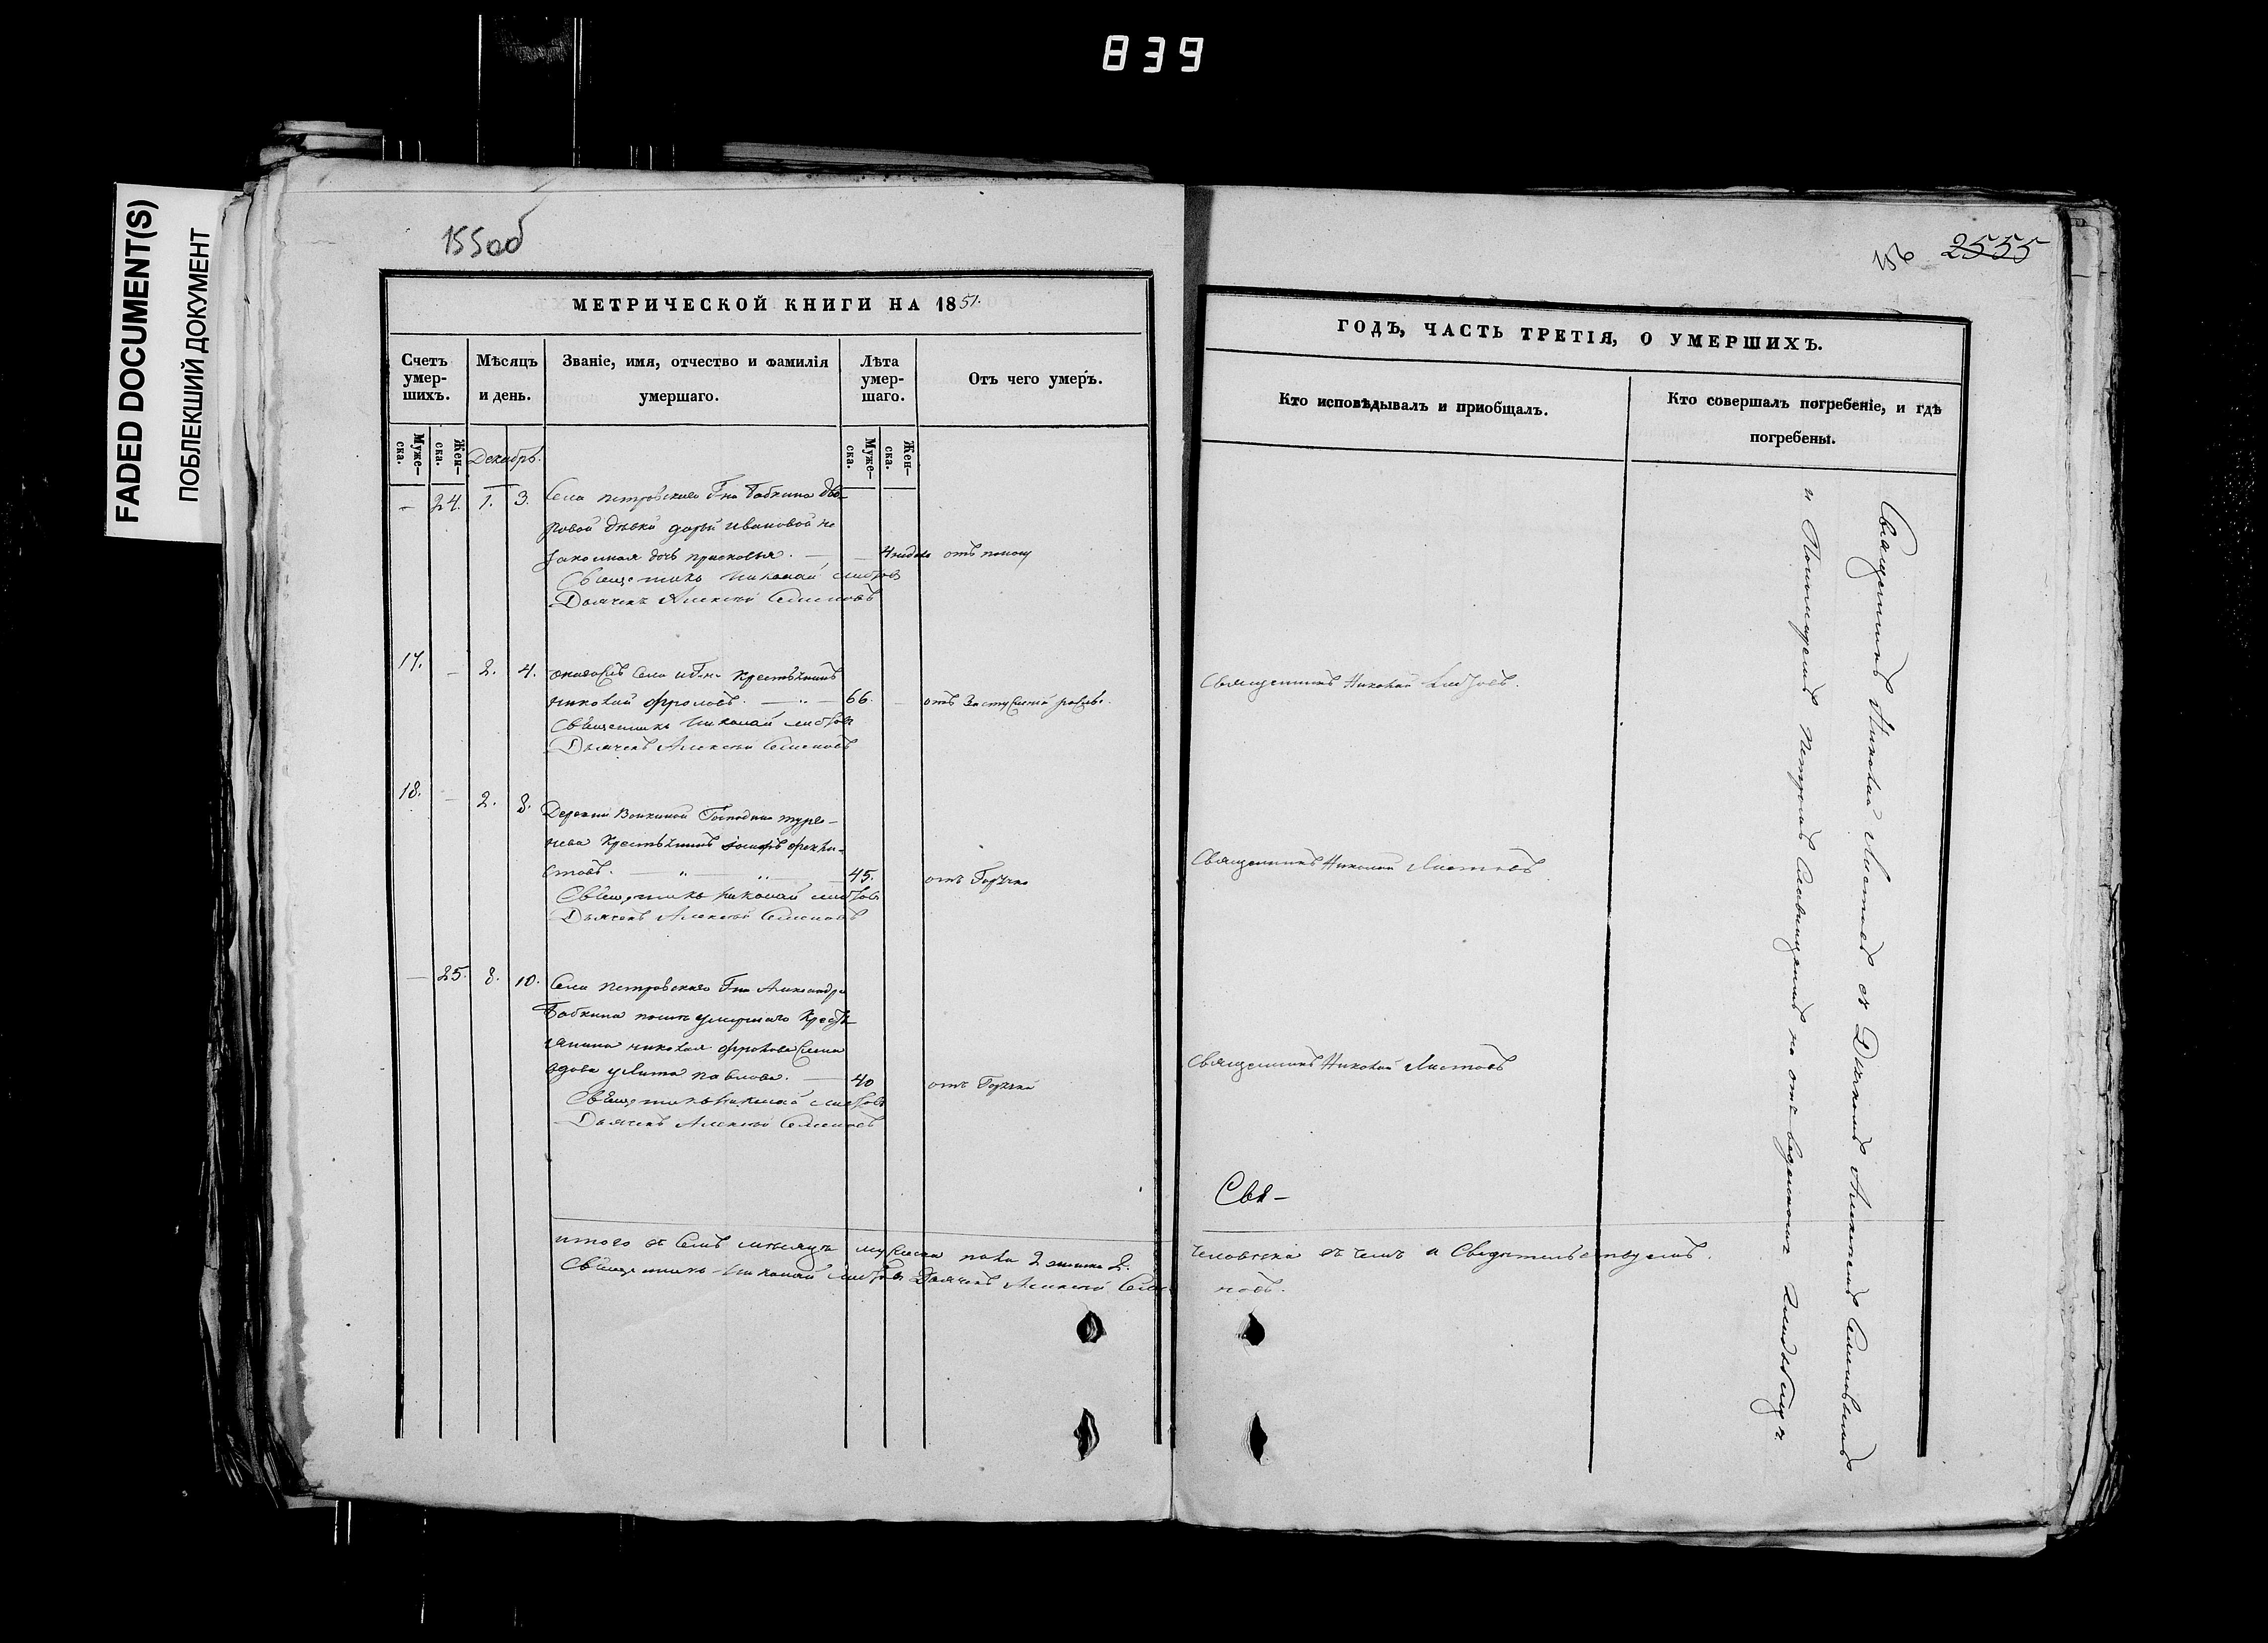 839
FADED DOCUMENT(S)
ПОБЛЕКШИЙ ДОКУМЕНТ
155об
МЕТРИЧЕСКОЙ КНИГИ НА 1851.
Счетъ умер-шихъ.
Мѣсяцъ и день.
Званіе, имя, отчество и фамилія умершаго.
Лѣта умер-шаго.
Отъ чего умеръ.
Муже-ска.
Жен-ска.
Декабрь.
Муже-ска.
Жен-ска.
— 24. 1. 3. Села петровскаго Гна Бабкина дво-
ровой дѣвки дарьи ивановой не
законная дочь прасковья. — 4 недель отъ поносу
Священникъ Николай Листовъ
Дьячекъ Алексѣй Семеновъ
17. — 2. 4. Села Крестьянинъ
николай фроловъ. — 66. отъ
Священникъ Николай Листовъ
Дьячекъ Алексѣй Семеновъ
18. — 2. 8. Деревни Господина турге-
нева Крестьянинъ
45. отъ Горячки
Священникъ Николай Листовъ
Дьячекъ Алексѣй Семеновъ
— 25. 8. 10. Села петровскаго Гна Александра
Бабкина умершаго Кресть
янина николая фролова жена
вдова улита павлова. — 40 отъ Горячки
Священникъ Николай Листовъ
Дьячекъ Алексѣй Семеновъ
итого въ семъ мѣсяцѣ мужеска пола 2 женска 2.
Священникъ Николай Листовъ Дьячекъ Алексѣй Семе
156 2555
ГОДЪ, ЧАСТЬ ТРЕТІЯ, О УМЕРШИХЪ.
Кто исповѣдывалъ и пріобщалъ.
Кто совершалъ погребеніе, и гдѣ погребены.
Священникъ Николай Листовъ.
Священникъ Николай Листовъ
Священникъ Николай Листовъ
Свя-
человѣка въ чемъ и Свидѣтельствуемъ.
новъ.
Священникъ Николай Листовъ съ Дьячкомъ Алексѣемъ Семеновымъ
и Пономаремъ Петромъ на отведенномъ кладбищѣ.